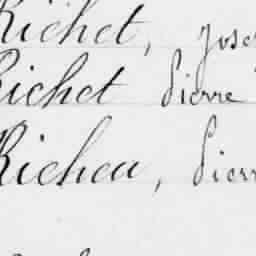 Richet, Jose
Richet Pierre
Richeu, Pierr